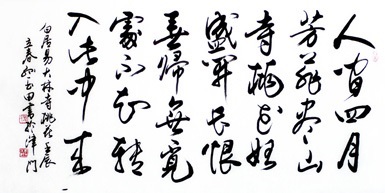 人间四月
芳菲尽山
寺桃花始
盛开长恨
春归无觅
处不知转
入此中来
白居易大林寺桃花壬辰
立春如玉田書於津门